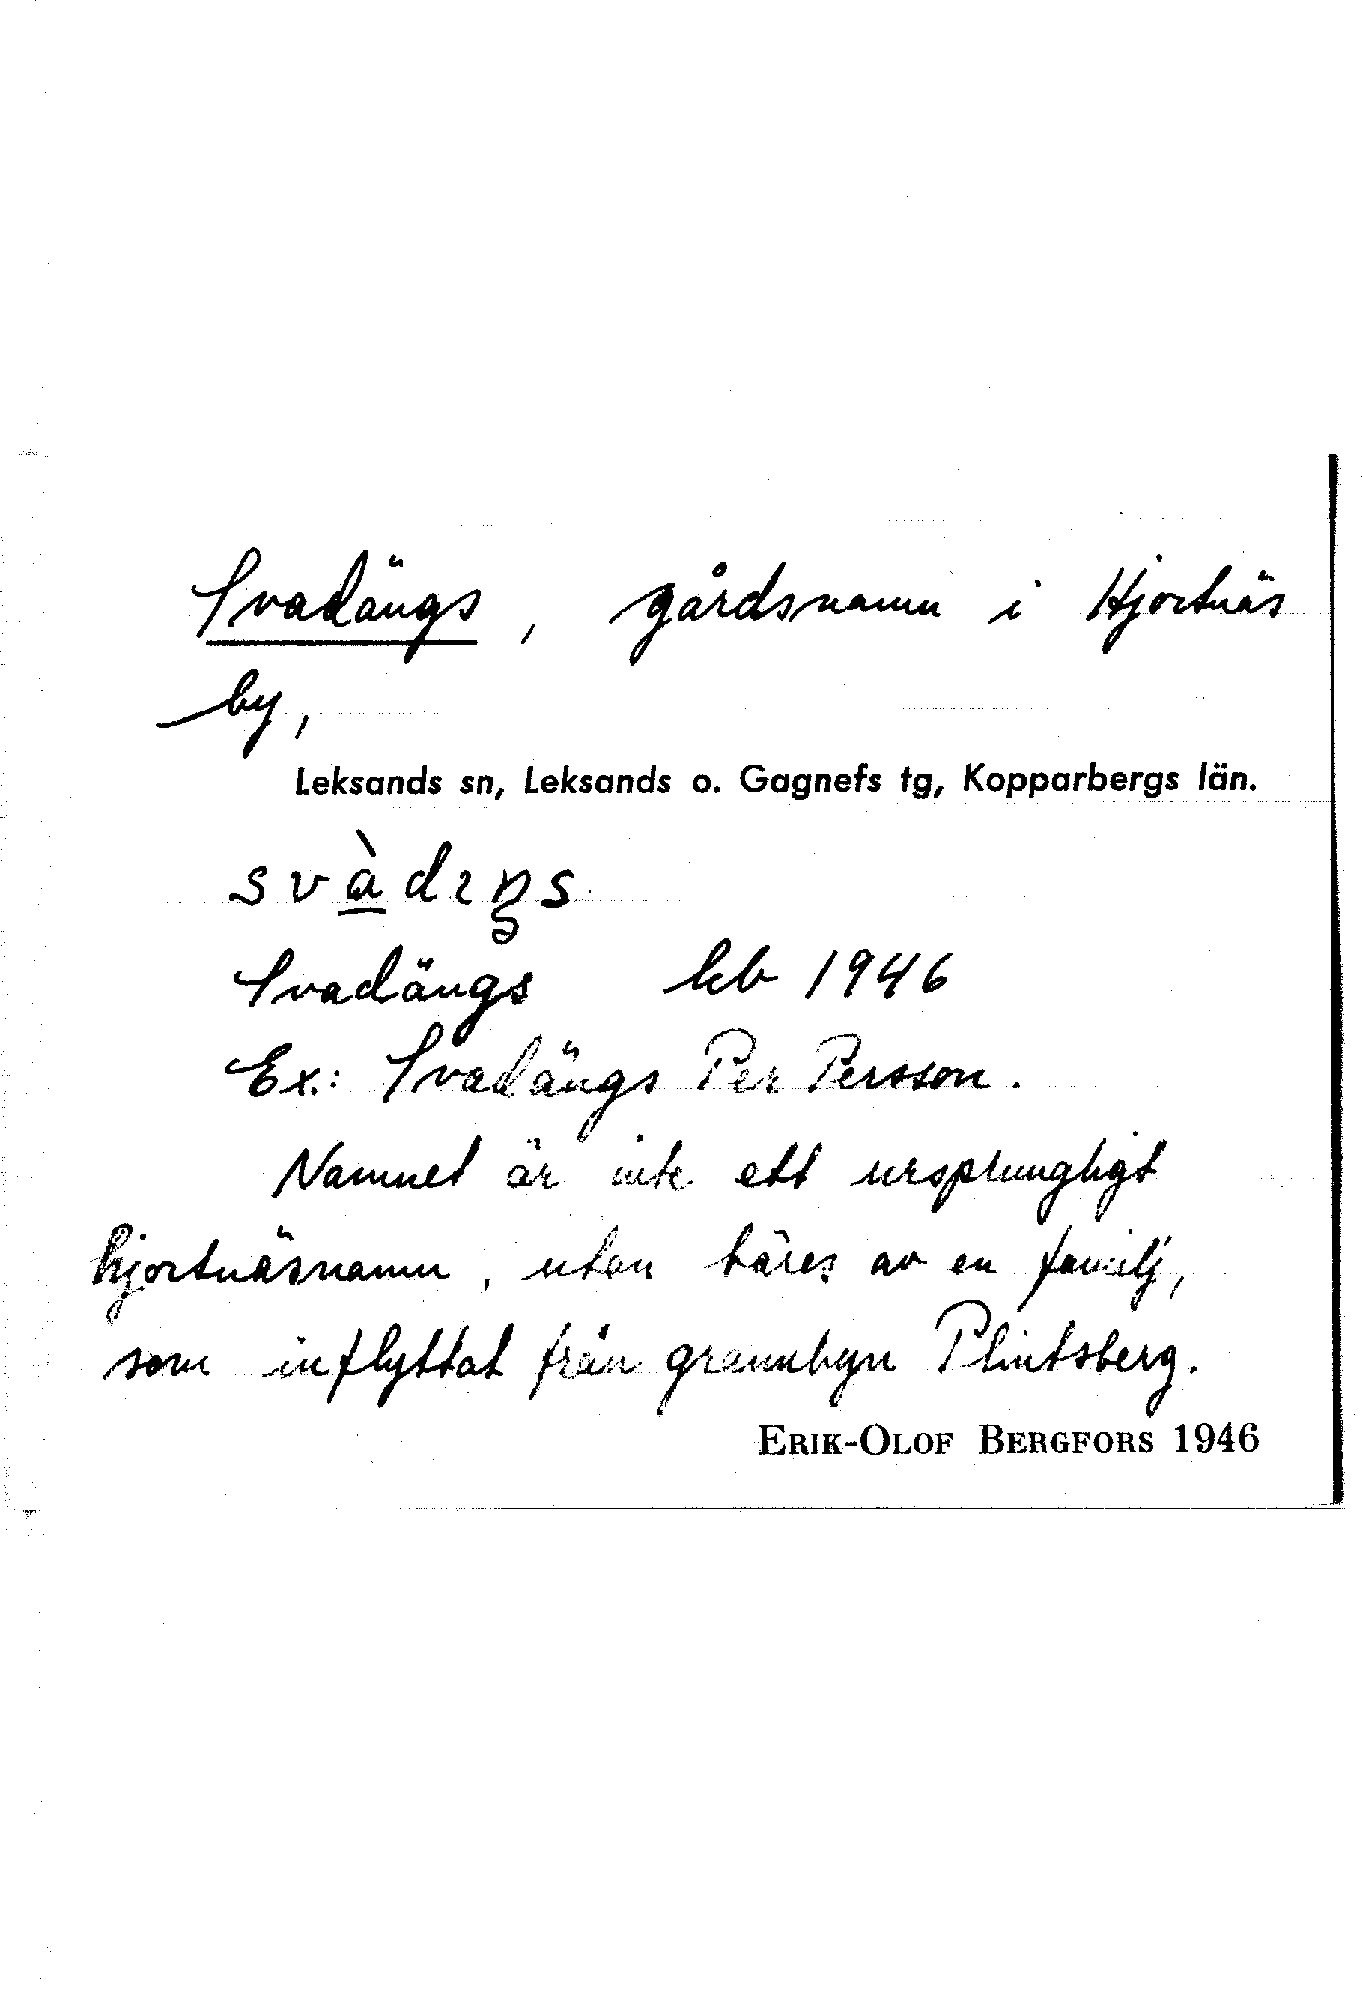 Svadängs, gårdsnamn i Hjortnäs
by,
Leksands sn, Leksands o. Gagnefs tg, Kopparbergs län.
Svadängs kb 1946
Ex.: Svadängs Per Persson.
Namnet är inte ett ursprungligt
hjortnäsnamn, utan bäres av en familj,
som inflyttat från grannbyn Plintsberg.
ERIK-OLOF BERGFORS 1946